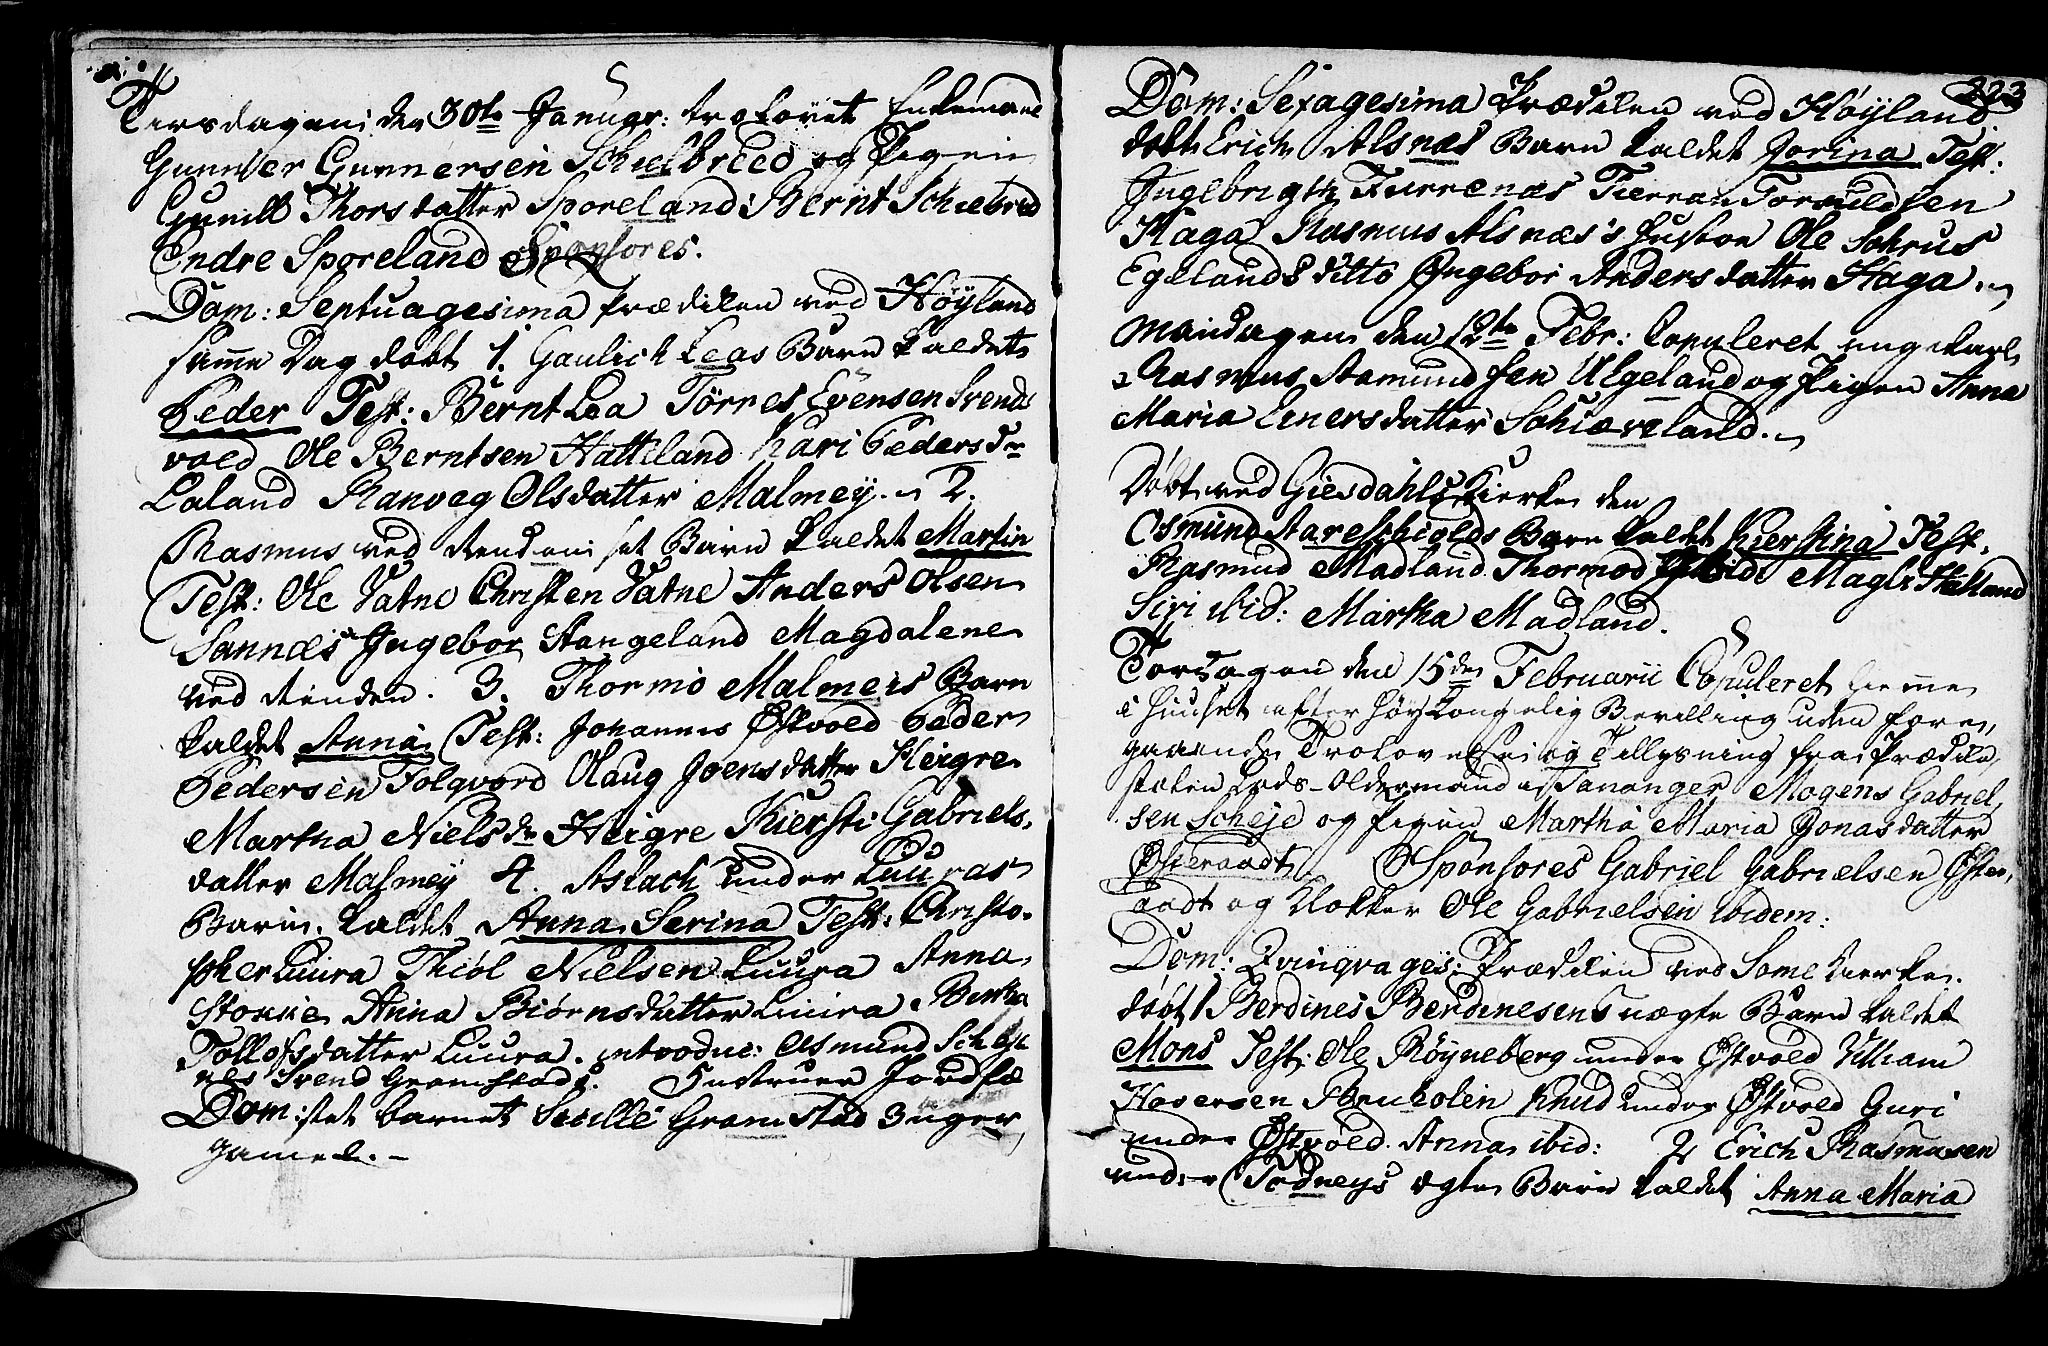 Tirsdagen den 30te Januar: trolovet Enkemand
Gunner Gunnersen Schielbreed og Pigen
Gunill Thorsdatter Sporeland: Bernt Schielbred
Endre Sporeland Sponsores.
Dom: Septuagesima Prædiken ved Høyland
samme Dag døbt 1. Gaulich Leas Barn kaldet
Peder Test: Bernt Lea Tørres Evensen Svends
vold Ole Berntsen Hatteland Kari Peders Dr
Laland Ranveg Olsdatter Malmey. 2.
Rasmus ved Renden sit Barn kaldet Martin
Test: Ole Vatne Christen Vatne Anders Olsen
Sannæs Ingebor Stangeland Magdalene
ved Renden. 3. Thormo Malmeis Barn
kaldet Anna Test: Johannes Østvold Peder
Pedersen Folqvord Olaug Joensdatter Heigre
Martha Niels Dr Heigre Kiersti Gabriels
datter Malmey 4. Aslach under Luuras
Barn kaldet Anna Serina Test: Christo-
pher Luura Thiøl Nielsen Luura Anna
Stokke Anna Biørnsdatter Luura Bertha
Tollofsdatter Luura. introduc: Asmund
Svend Gramstads. Jordfæ
stet barnet Sicille Gramstad 3 uger
gamel.
223
Dom: Sexagesima Prædiken ved Høyland
døbt Erich Alsnæs Barn kaldet Jorina Test:
Ingebrigt Furrenæs Torvuldsen
Haga Rasmus Alsnæs's Hustroe Ole Schrus
Egelands ditto Ingebor Andersdatter Haga
Mandagen den 12te Febr: Copuleret ung Karl
Rasmus Aamundsen Ulgeland og Pigen Anna
Maria Einersdatter Schiæveland.
Døbt ved Giesdahls Kierke den
Osmund Aareschiolds Barn kaldet Kierstina Test.
Rasmus Madland Thormod ibid: Magli Helland
Siri ibid: Martha Madland.
Torsdagen den 15de Februarii Copuleret hiemme
i Huuset efter høy Kongelig Bevilling uden fore-
gaaende Trolovelse og Tillysning fra Prædike
stolen Lods-Oldermand i Tananger Mogens Gabriel
sen Scheje og Pigen Martha Maria Jonasdatter
Østeraadt Sponsores Gabriel Gabrielsen Øster
aadt og Klokker Ole Gabrielsen ibidem.
Dom: Qvinqvages: Prædiken ved Some Kierke
døbt 1 Berdines Berdinesens uægte Barn kaldet
Mons Test: Ole Røyneberg under Østvold Villiam
Haversen Knud under Østvold Guri
under Østvold Anna ibid: 2 Erich Rasmusen
under Todneys ægte Barn kaldet Anna Maria